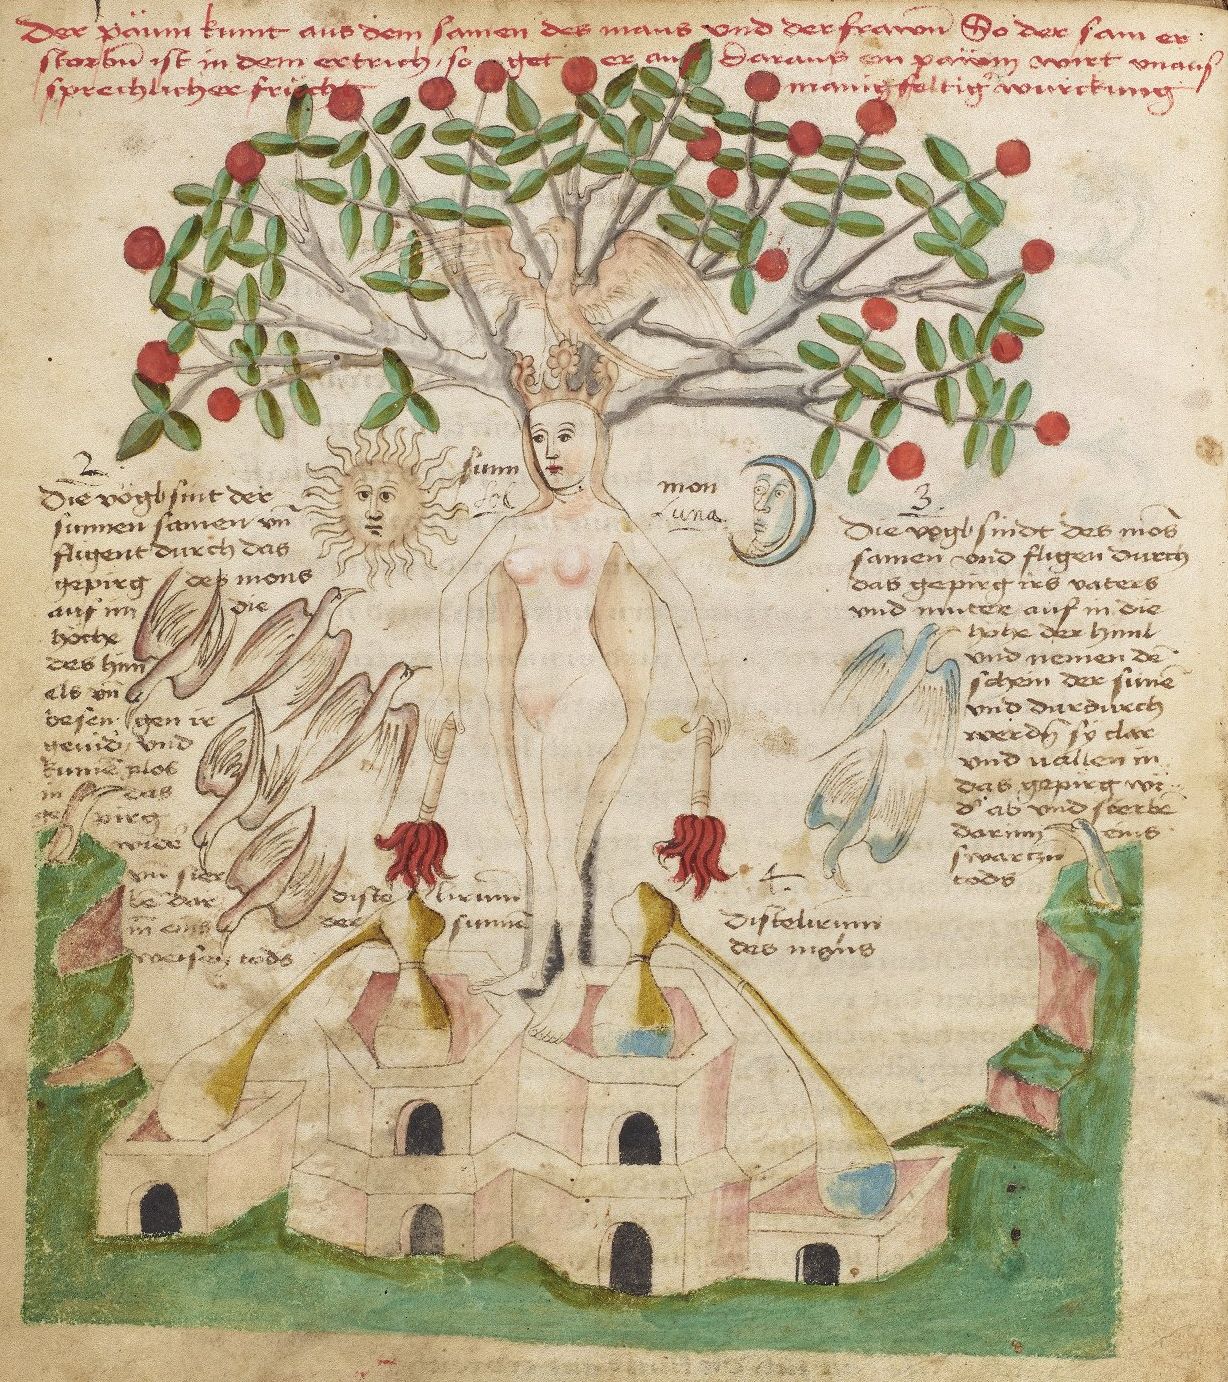 Der páum kumt aus dem samen des mans und der frawn So der sam er
storbn ist in dem ertrich, so get er auf Daraus ein páwm wirt unaus
sprechlicher frúcht manigfeltig würckung
2
Die vögl sint der
sunnen samen vn
flugent durch das
gepirg des mons
auf in die
höche
des him
els vn
besen gen ir
und
kumen plos
in das
gepirg
wider
vn ster
be dar
in eins
weisen tods
sunn
Sol
mon
Luna
3
Die vogl sindt des mons
samen vnd flugen durch
das gepirg irs vaters
vnd muter auf in die
hohe der himl
vnd nemen de
schein der sune
vnd durdurch
werdn sy clar
vnd vallen in
das gepirg wi
d' ab vnd sterbe
darinn eins
swartzn
tods
distelirum
der sunne
4
Distelirum
des mons